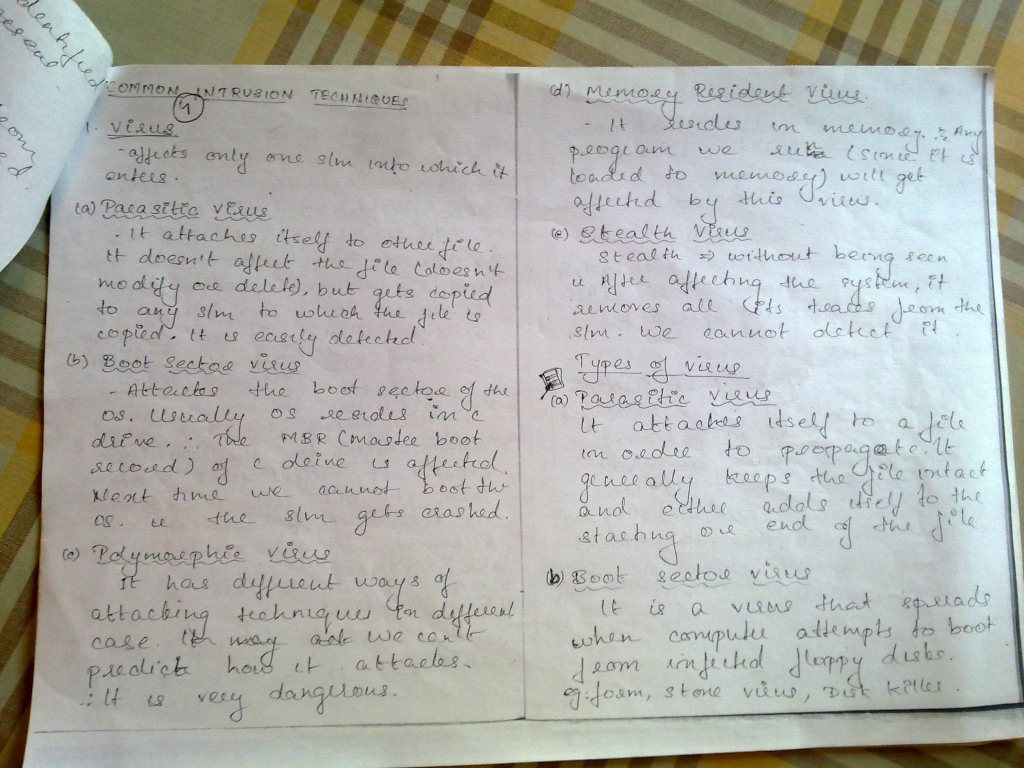 dentified
COMMON INTRUSION TECHNIQUES
4
1. Virus
- affects only one s/m into which it
enters.
(a) Parasitic virus
- It attaches itself to other file.
It doesn't affect the file (doesn't
modify or delete), but gets copied
to any s/m to which the file is
copied. It is easily detected.
(b) Boot sector virus
- Attacks the boot sector of the
OS. Usually OS resides in C
drive. ∴ The MBR (master boot
record) of C drive is affected.
Next time we cannot boot the
OS. ie the s/m gets crashed.
(c) Polymorphic virus
It has different ways of
attacking techniques in different
case. We can't
predict how it attacks.
∴ It is very dangerous.
(d) Memory Resident Virus
- It resides in memory. ∴ Any
program we run (since it is
loaded to memory) will get
affected by this virus.
(e) Stealth Virus
Stealth ⇒ without being seen
ie After affecting the system, it
removes all its traces from the
s/m. We cannot detect it.
Types of virus
(a) Parasitic virus
It attaches itself to a file
in order to propagate. It
generally keeps the file intact
and either adds itself to the
starting or end of the file
(b) Boot sector virus
It is a virus that spreads
when computer attempts to boot
from infected floppy disks.
eg: form, stone virus, Disk killer.